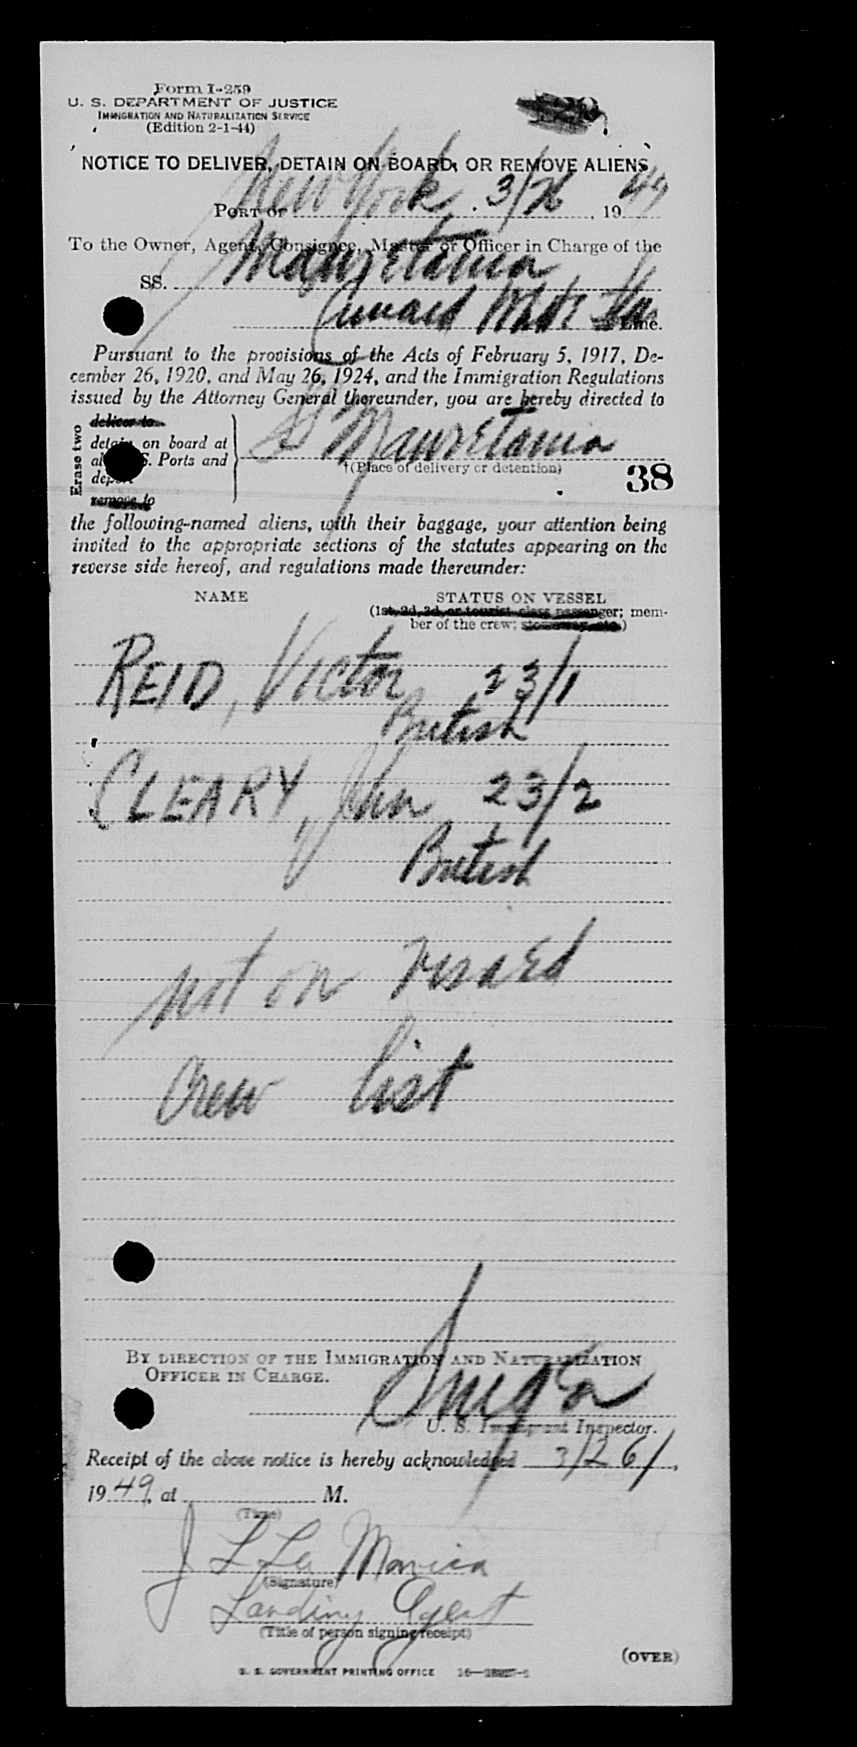 Form I-259
U. S. DEPARTMENT OF JUSTICE
IMMIGRATION AND NATURALIZATION SERVICE
(Edition 2-1-44)
NOTICE TO DELIVER, DETAIN ON BOARD, OR REMOVE ALIENS
PORT OF New York 3/26, 1949
To the Owner, Agent, Consignee, Master or Officer in Charge of the
SS. Mauretania
Cunard White Star Line.
Pursuant to the provisions of the Acts of February 5, 1917, De-
cember 26, 1920, and May 26, 1924, and the Immigration Regulations
issued by the Attorney General thereunder, you are hereby directed to
Erase two
deliver to
detain on board at
all U.S. Ports and
deport
remove to
SS Mauretania
†(Place of delivery or detention)
38
the following-named aliens, with their baggage, your attention being
invited to the appropriate sections of the statutes appearing on the
reverse side hereof, and regulations made thereunder:
NAME STATUS ON VESSEL
(1st, 2d, 3d, or tourist class passenger; mem-
ber of the crew; stowaway, etc.)
REID, Victor 23/1
British
CLEARY, John 23/2
British
not on visaed
crew list
BY DIRECTION OF THE IMMIGRATION AND NATURALIZATION
OFFICER IN CHARGE.
U. S. Immigrant Inspector.
Receipt of the above notice is hereby acknowledged 3/26/,
1949, at M.
(Time)
J L La Monica
(Signature)
Landing Agent
(Title of person signing receipt)
(OVER)
U. S. GOVERNMENT PRINTING OFFICE